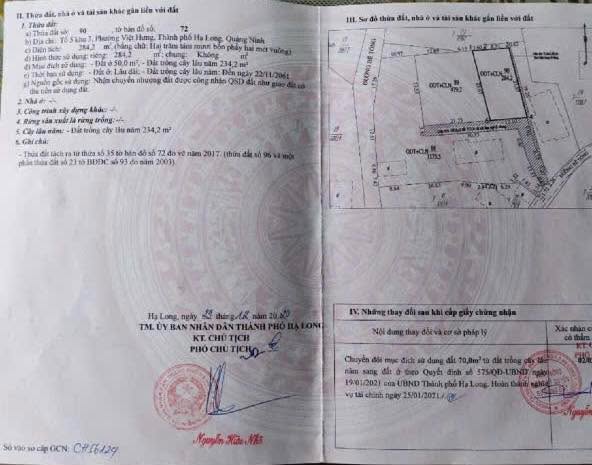 II. Thửa đất, nhà ở và tài sản khác gắn liền với đất
1. Thửa đất:
a) Thửa đất số: 90 , tờ bản đồ số: 72
b) Địa chỉ: Tổ 5 khu 3, Phường Việt Hưng, Thành phố Hạ Long, Quảng Ninh
c) Diện tích: 284,2 m², (bằng chữ: Hai trăm tám mươi bốn phẩy hai mét vuông)
d) Hình thức sử dụng: riêng: 284,2 m²; chung: Không m²
đ) Mục đích sử dụng: - Đất ở 50,0 m², - Đất trồng cây lâu năm 234,2 m²
e) Thời hạn sử dụng: - Đất ở: Lâu dài; - Đất trồng cây lâu năm: Đến ngày 22/11/2061
g) Nguồn gốc sử dụng: Nhận chuyển nhượng đất được công nhận QSD đất như giao đất có
thu tiền sử dụng đất
2. Nhà ở: -/-
3. Công trình xây dựng khác: -/-
4. Rừng sản xuất là rừng trồng: -/-
5. Cây lâu năm: - Đất trồng cây lâu năm 234,2 m²
6. Ghi chú:
- Thửa đất tách ra từ thửa số 35 tờ bản đồ số 72 đo vẽ năm 2017. (thửa đất số 96 và một
phần thửa đất số 23 tờ BĐĐC số 93 đo năm 2003).
Hạ Long, ngày tháng 12 năm 20
TM. ỦY BAN NHÂN DÂN THÀNH PHỐ HẠ LONG
KT. CHỦ TỊCH
PHÓ CHỦ TỊCH
Nguyễn Hữu Nhã
Số vào sổ cấp GCN: CH56124
III. Sơ đồ thửa đất, nhà ở và tài sản khác gắn liền với đất
ĐƯỜNG BÊ TÔNG
ODT+CLN 89 979.2
ODT+CLN 90 284.2
ODT+CLN 88 1175.5
ĐƯỜNG BÊ TÔNG
IV. Những thay đổi sau khi cấp giấy chứng nhận
Nội dung thay đổi và cơ sở pháp lý
Xác nhận củ
có thẩm
Chuyển đổi mục đích sử dụng đất 70,0m² từ đất trồng cây lâu
năm sang đất ở theo Quyết định số 575/QĐ-UBND ngày
19/01/2021 của UBND Thành phố Hạ Long. Hoàn thành nghĩa
vụ tài chính ngày 25/01/2021